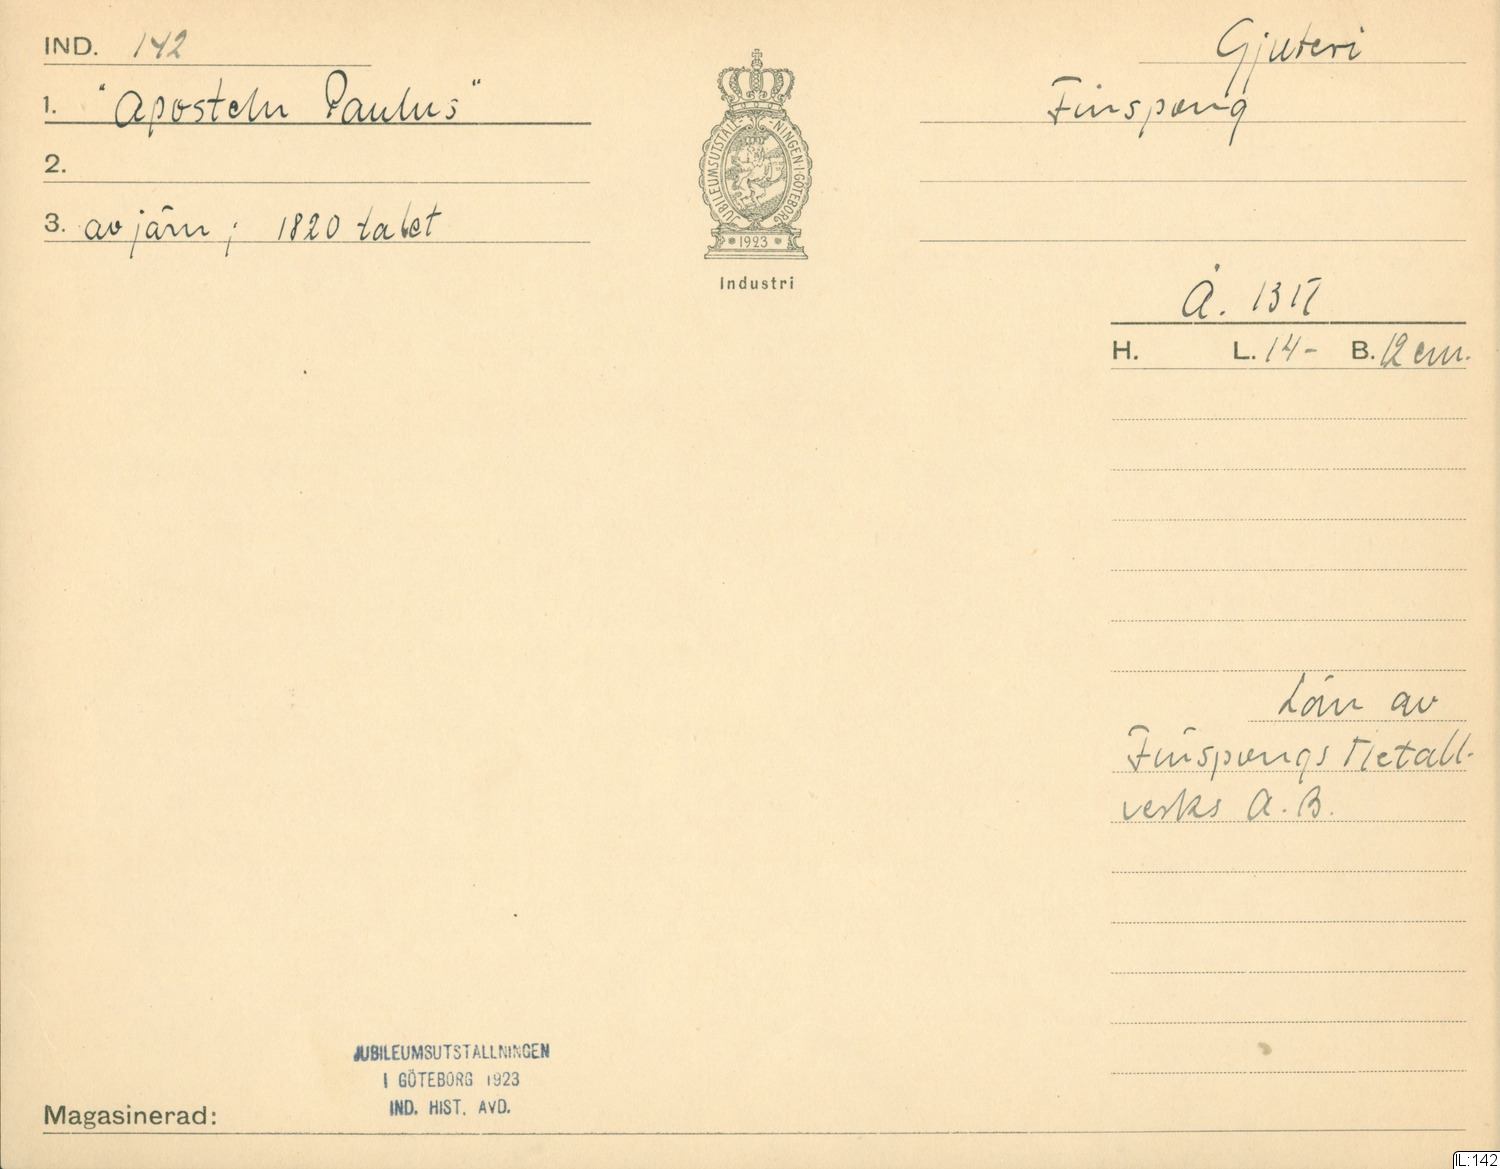 IND. 142
1. "Aposteln Paulus"
2.
3. av järn; 1820 talet
JUBILEUMSUTSTÄLL-NINGEN·I·GÖTEBORG
1923
Industri
Gjuteri
Finspong
Å.
H. L. 14- B. 12 cm.
Lån av
Finspongs Metall-
verks A.B.
JUBILEUMSUTSTÄLLNINGEN
I GÖTEBORG 1923
IND. HIST. AVD.
Magasinerad:
IL:142